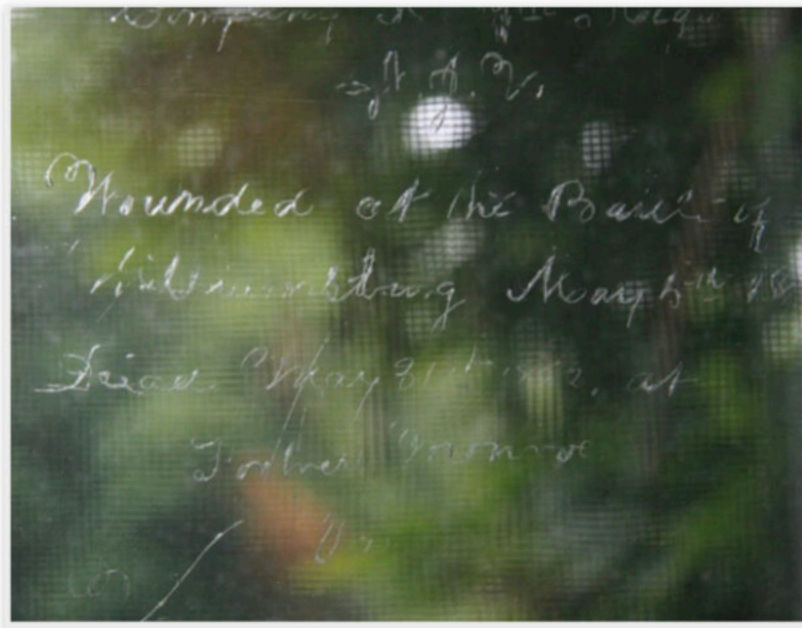 Company
of V.
Wounded at the Battle of
Williamsburg May 5th 18
Died May 31st 1862, at
Fortress Monroe